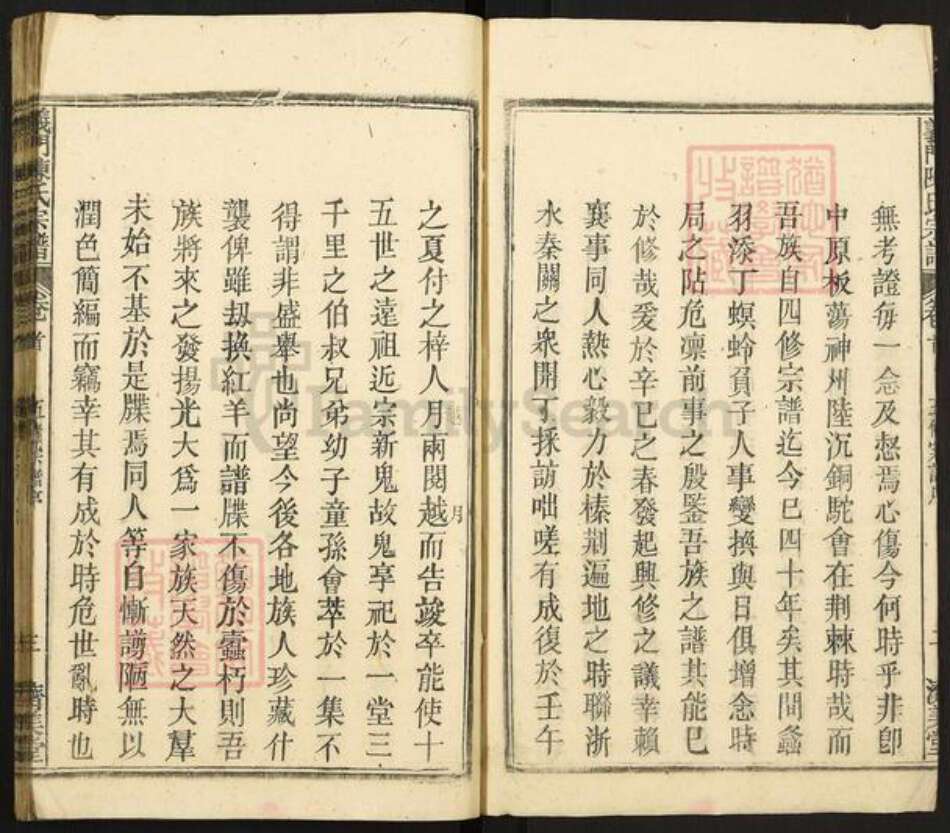 無考證每一念及愁焉心傷今何時乎非卽
中原板蕩神州陸沉銅駝會在荆棘時哉而
吾族自四修宗譜迄今巳四十年矣其間螽
羽添丁螟蛉負子人事變換與日俱增念時
局之阽危凛前事之殷鑒吾族之譜其能巳
於修哉爰於辛巳之春發起興修之議幸賴
襄事同人熱心毅力於榛荆遍地之時聯浙
水秦關之衆開丁採訪咄嗟有成復於壬午
義門陳氏宗譜
卷首
五修宗譜序
二
濟美堂
之夏付之梓人月兩閱越月而告竣卒能使十
五世之遠祖近宗新鬼故鬼享祀於一堂三
千里之伯叔兄弟幼子童孫會萃於一集不
得謂非盛舉也尚望今後各地族人珍藏什
襲俾雖刼換紅羊而譜牒不傷於蠹朽則吾
族將來之發揚光大爲一家族天然之大羣
未始不基於是牒焉同人等自慚謭陋無以
潤色簡編而竊幸其有成於時危世亂時也
義門陳氏宗譜
卷首
五修宗譜序
三
濟美堂
FamilySearch